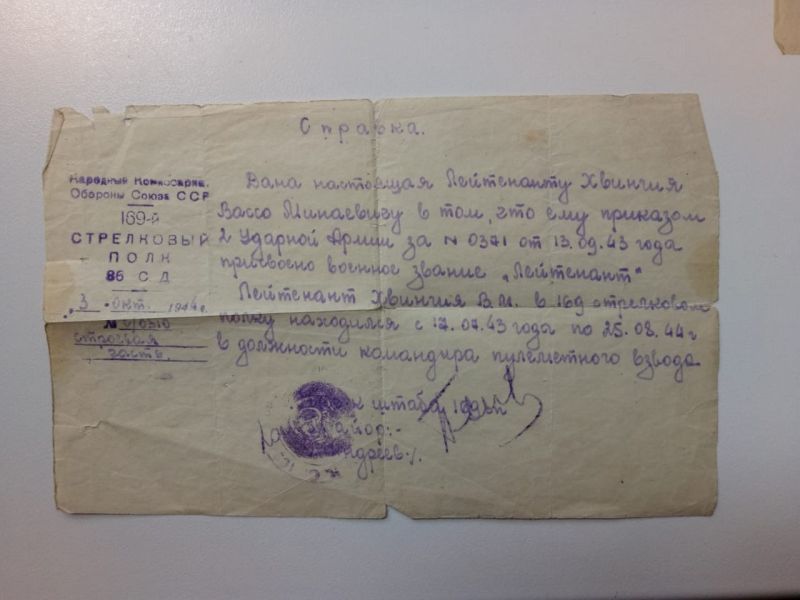 Справка.
Народный Комиссариа.
Обороны Союза ССР
169-й
СТРЕЛКОВЫЙ
ПОЛК
86 СД
"3" окт. 1944 г.
№ 0/0310
строевая
часть.
Дана настоящая Лейтенанту Хвингия
Вассо Минаевичу в том, что ему приказом
2 Ударной Армии за N 0371 от 13.09.43 года
присвоено военное звание "Лейтенант"
Лейтенант Хвингия В.М. в 169 стрелковом
полку находился с 17.07.43 года по 25.08.44 г
в должности командира пулеметного взвода
штаба 169сп
майор:-
ндреев-/.